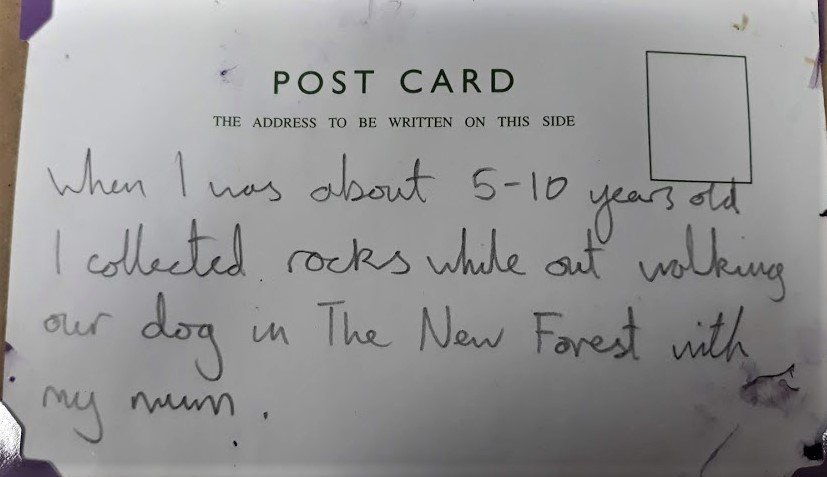 POST CARD
THE ADDRESS TO BE WRITTEN ON THIS SIDE
When I was about 5-10 years old
I collected rocks while out walking
our dog in The New Forest with
my mum.